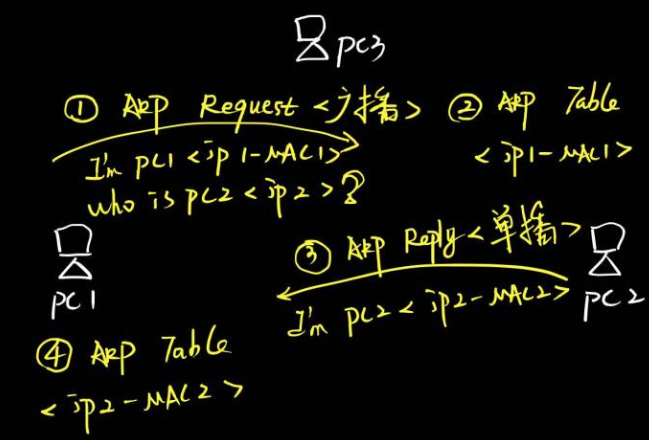 PC3
① ARP Request <广播>
I'm PC1 <ip1-MAC1>
who is PC2 <ip2>?
② ARP Table
<ip1-MAC1>
PC1
③ ARP Reply <单播>
I'm PC2 <ip2-MAC2>
PC2
④ ARP Table
<ip2-MAC2>